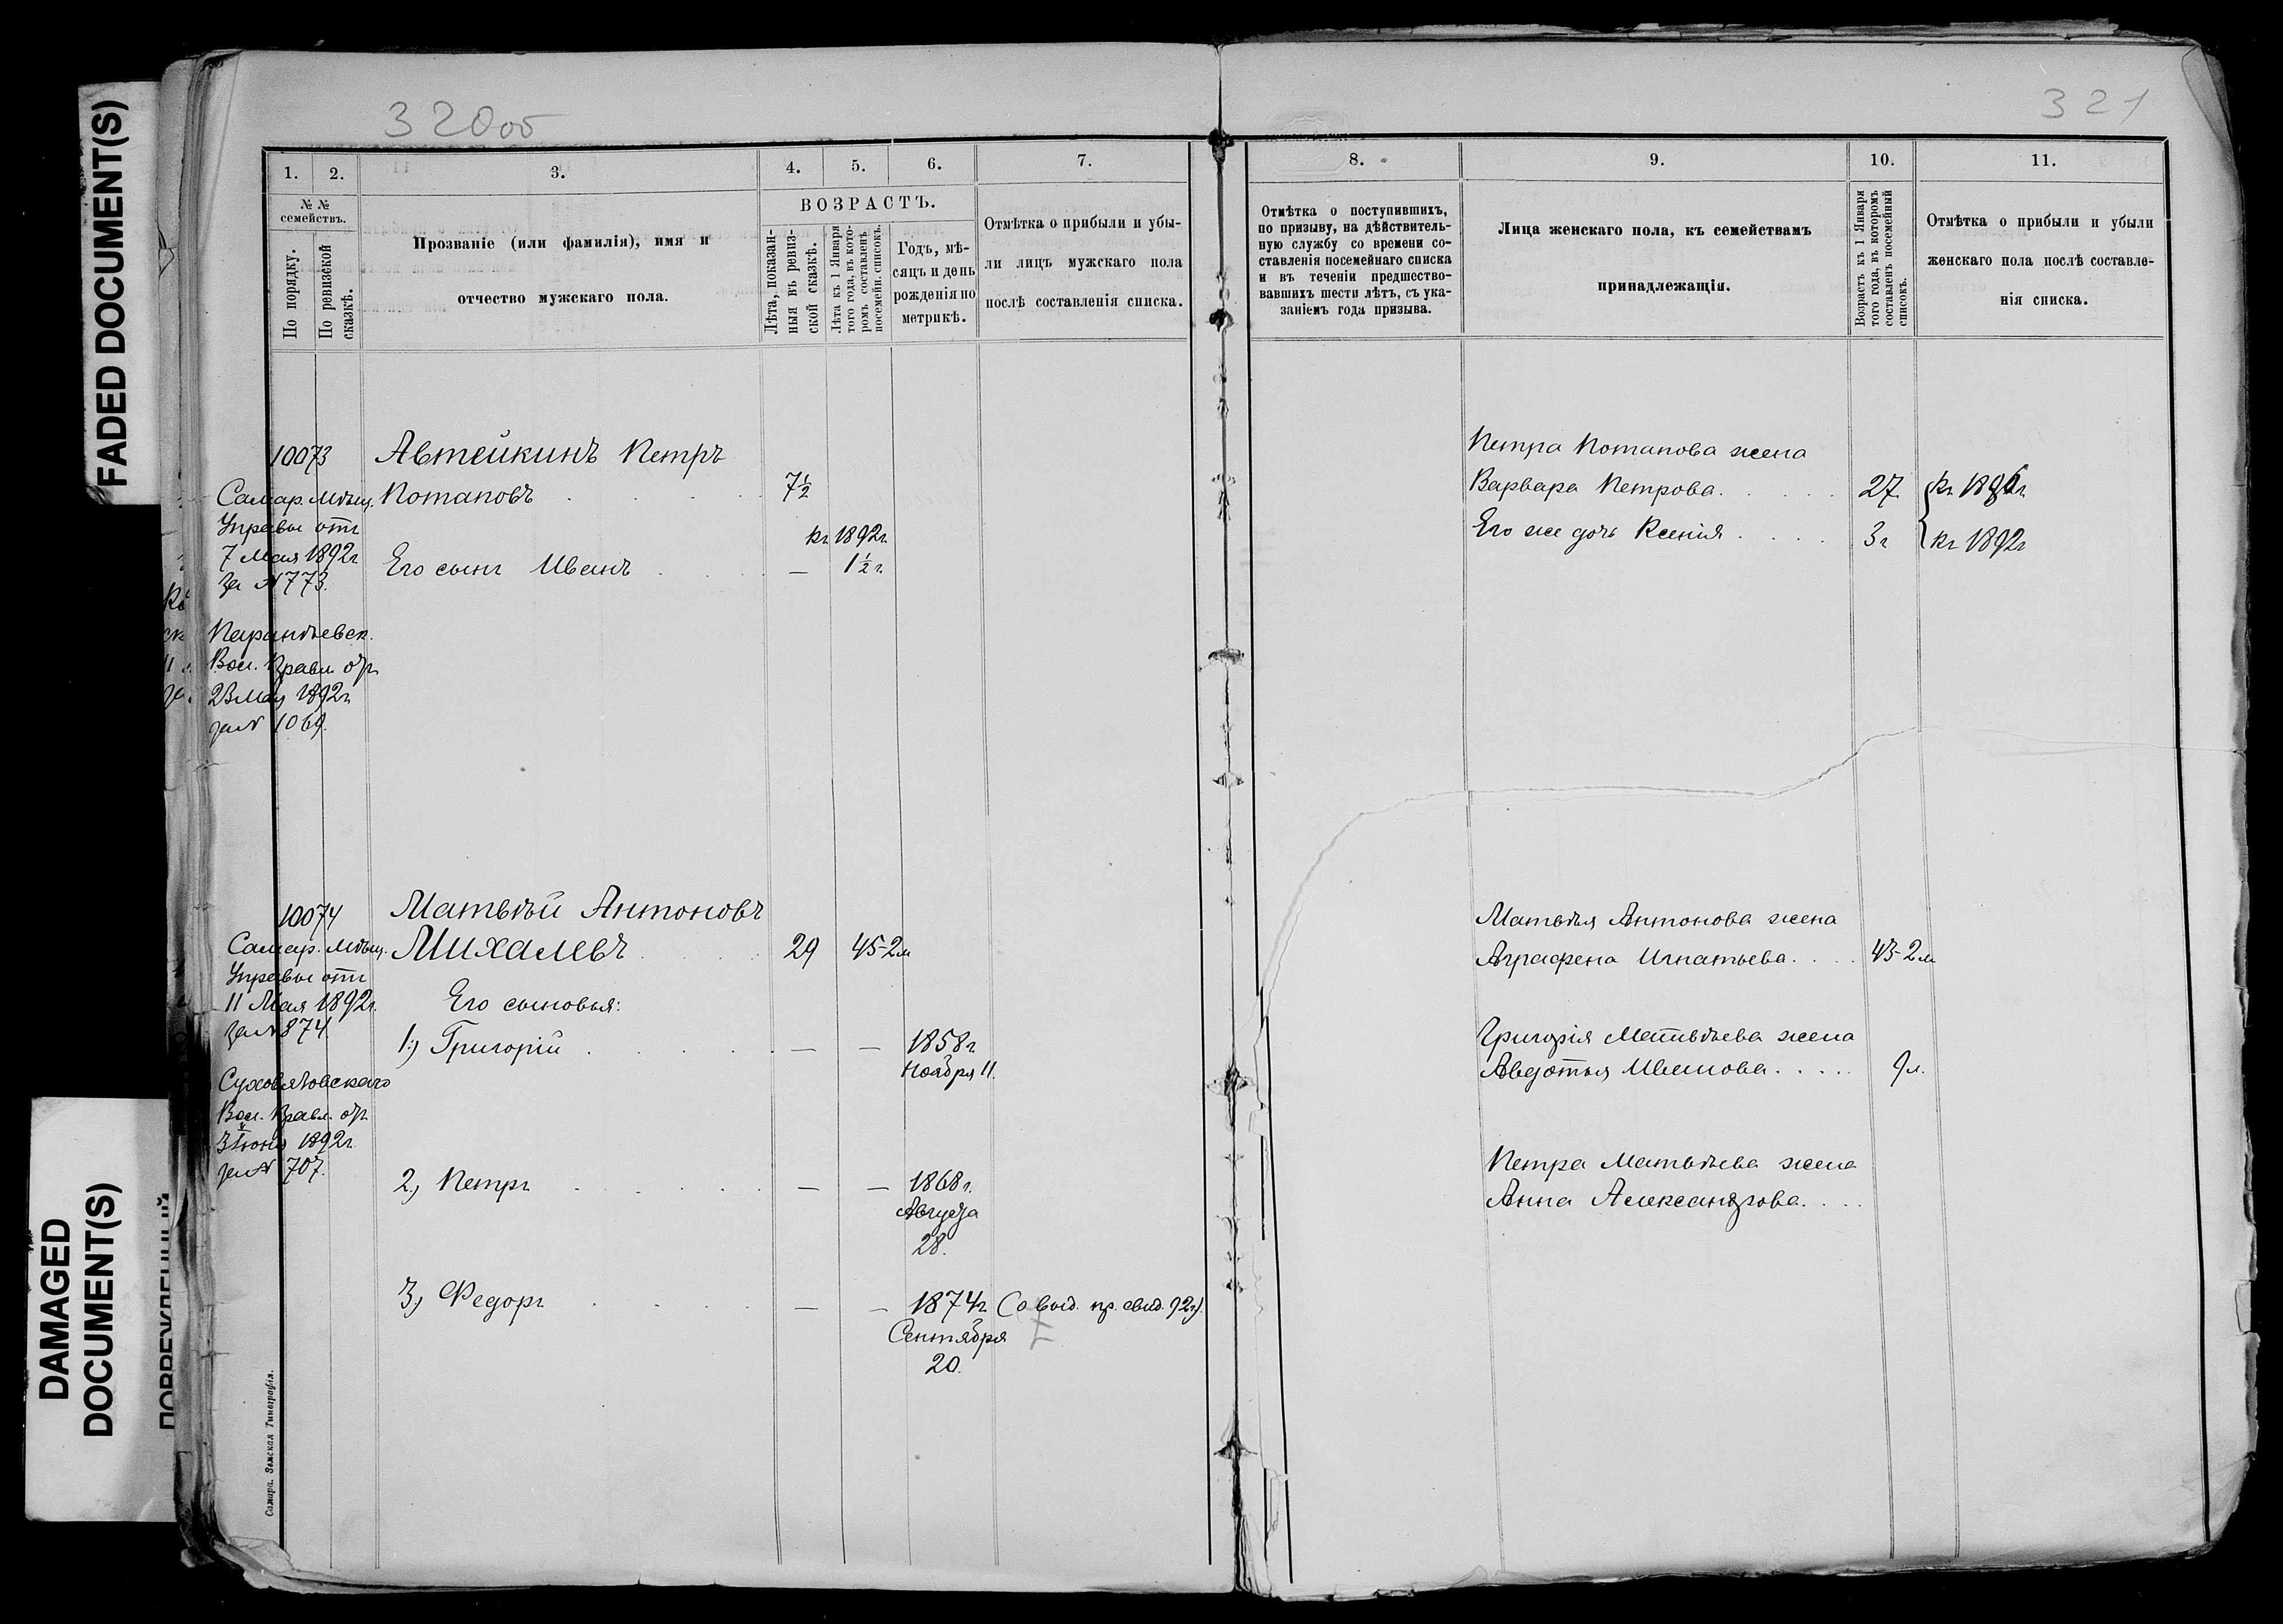 FADED DOCUMENT(S)
DAMAGED
DOCUMENT(S)
320об
1.
2.
3.
4.
5.
6.
7.
№ №
семействъ.
По порядку.
По ревизской
сказкѣ.
Прозваніе (или фамилія), имя и
отчество мужскаго пола.
ВОЗРАСТЪ.
Лѣта, показан-
ныя въ ревиз-
ской сказкѣ.
Лѣта къ 1 Января
того года, въ кото-
ромъ составленъ
посемейн. списокъ.
Годъ, мѣ-
сяцъ и день
рожденія по
метрикѣ.
Отмѣтка о прибыли и убы-
ли лицъ мужскаго пола
послѣ составленія списка.
10073
Самар. Мѣщ.
Управы отъ
7 Мая 1892г
за №773.
Вол. Правл. отъ
23 Мая 1892г
за № 1069.
Автейкинъ Петръ
Потаповъ
7½
къ 1892г.
Его сынъ Иванъ — 1½ г.
10074
Самар. Мѣщ.
Управы отъ
11 Мая 1892г.
за №874.
Суховязовскаго
Вол. Правл. отъ
3 Іюня 1892г.
за № 707.
Матвѣй Антоновъ
Михалевъ 29 45-2м
Его сыновья:
1) Григорій — — 1858г.
Ноября 11.
2) Петръ — — 1868г.
Августа
28.
3) Федоръ — — 1874г. (О выд. пр. свид. 92г).
Сентября
20.
Самара. Земская Типографія.
321
8.
9.
10.
11.
Отмѣтка о поступившихъ,
по призыву, на дѣйствитель-
ную службу со времени со-
ставленія посемейнаго списка
и въ теченіи предшество-
вавшихъ шести лѣтъ, съ ука-
заніемъ года призыва.
Лица женскаго пола, къ семействамъ
принадлежащія.
Возрастъ къ 1 Января
того года, въ которомъ
составленъ посемейный
списокъ.
Отмѣтка о прибыли и убыли
женскаго пола послѣ составле-
нія списка.
Петра Потапова жена
Варвара Петрова. 27
Его же дочь Ксенія 3г къ 1892г
Матвѣя Антонова жена
Аграфена Игнатьева. 43-2м
Григорія Матвѣева жена
Авдотья Иванова. 9л.
Петра Матвѣева жена
Анна Александрова.